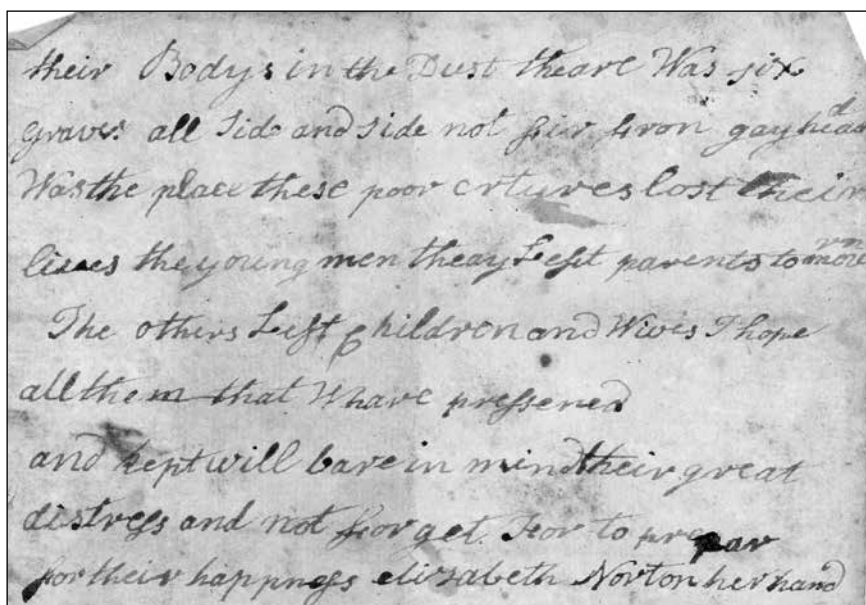 their Bodys in the Dust theare Was six
graves all Side and Side not fur fron gay head
Was the place these poor crtures lost their
lives the young men theay Left parents to morn
The others Left Children and Wives I hope
all them that Whare pressened
and kept will bare in mind their great
distress and not forget. For to prepar
for their happness elizabeth Norton her hand